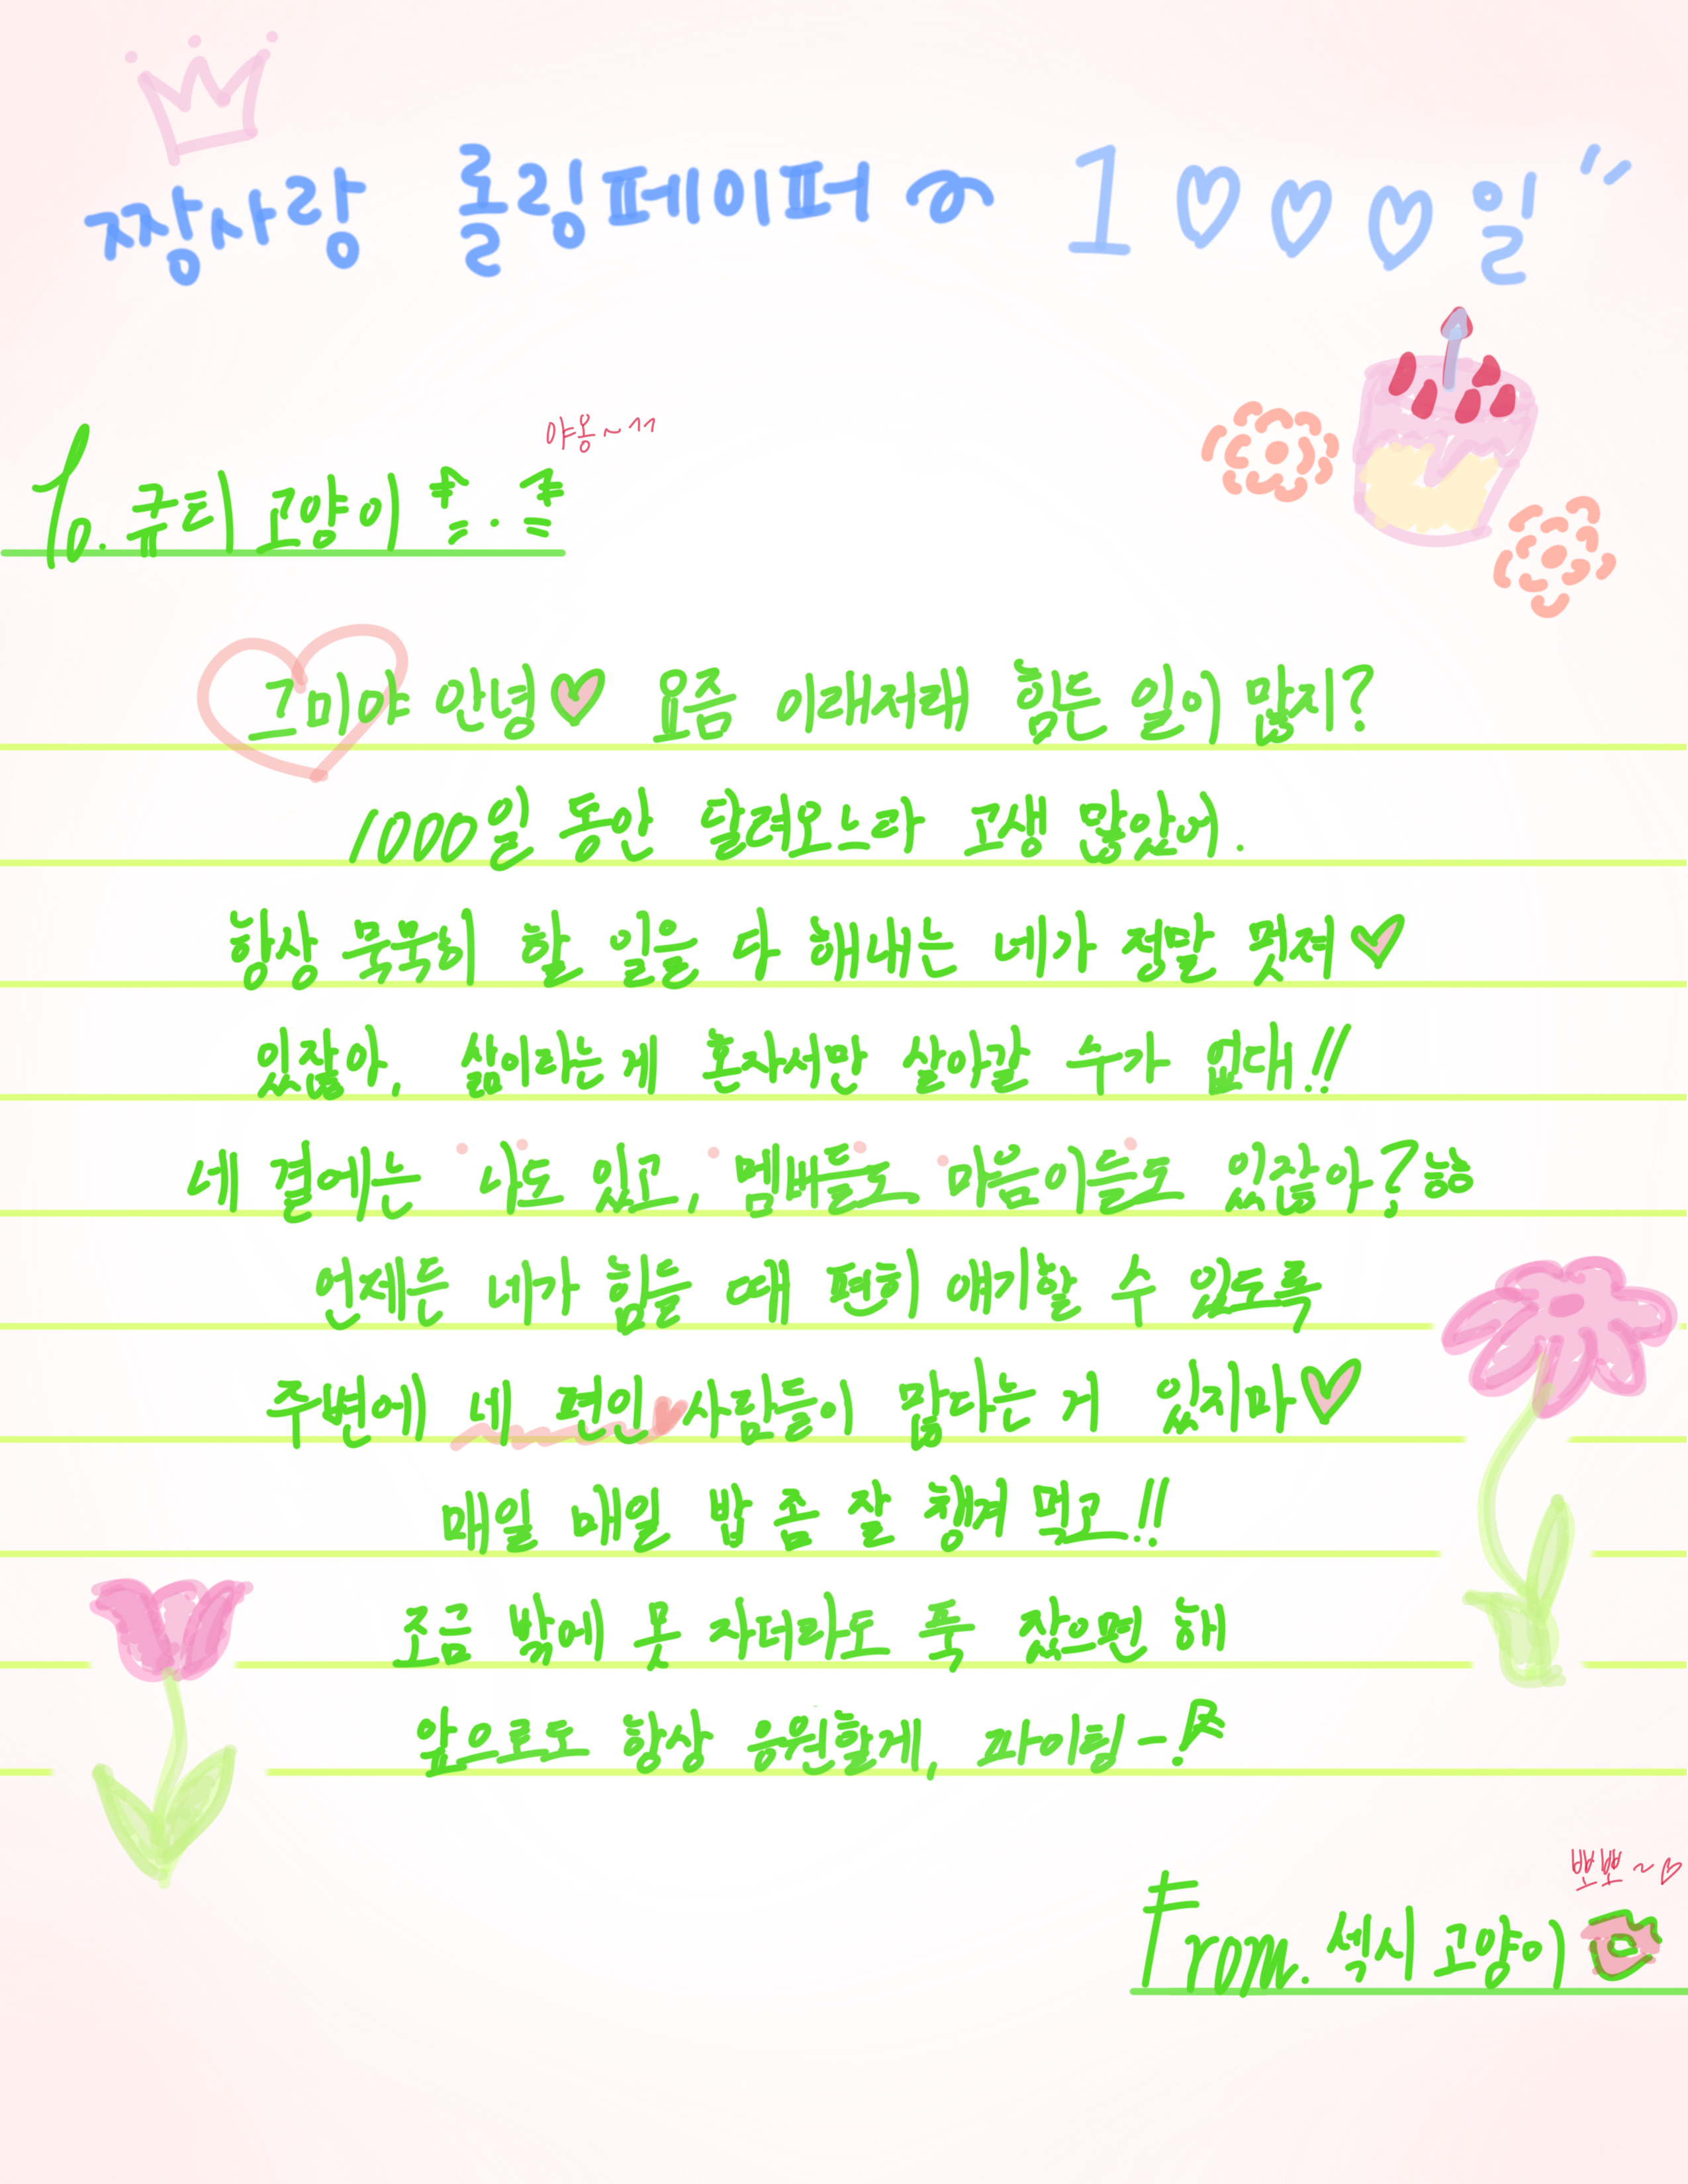 짱사랑 롤링페이퍼 1000일
야옹~ㄱㄱ
To. 큐티 고양이
그미야 안녕♡ 요즘 이래저래 힘든 일이 많지?
1000일 동안 달려오느라 고생 많았어.
항상 묵묵히 할 일을 다 해내는 네가 정말 멋져♡
있잖아, 삶이라는 게 혼자서만 살아갈 수가 없대!!
네 곁에는 나도 있고, 멤버들도 마음이들도 있잖아?
언제든 네가 힘들 때 편히 얘기할 수 있도록
주변에 네 편인♥사람들이 많다는 거 잊지마♡
매일 매일 밥 좀 잘 챙겨 먹고!!
조금 밖에 못 자더라도 푹 잤으면 해
앞으로도 항상 응원할게, 파이팅-!
뽀뽀~♡
From. 섹시 고양이